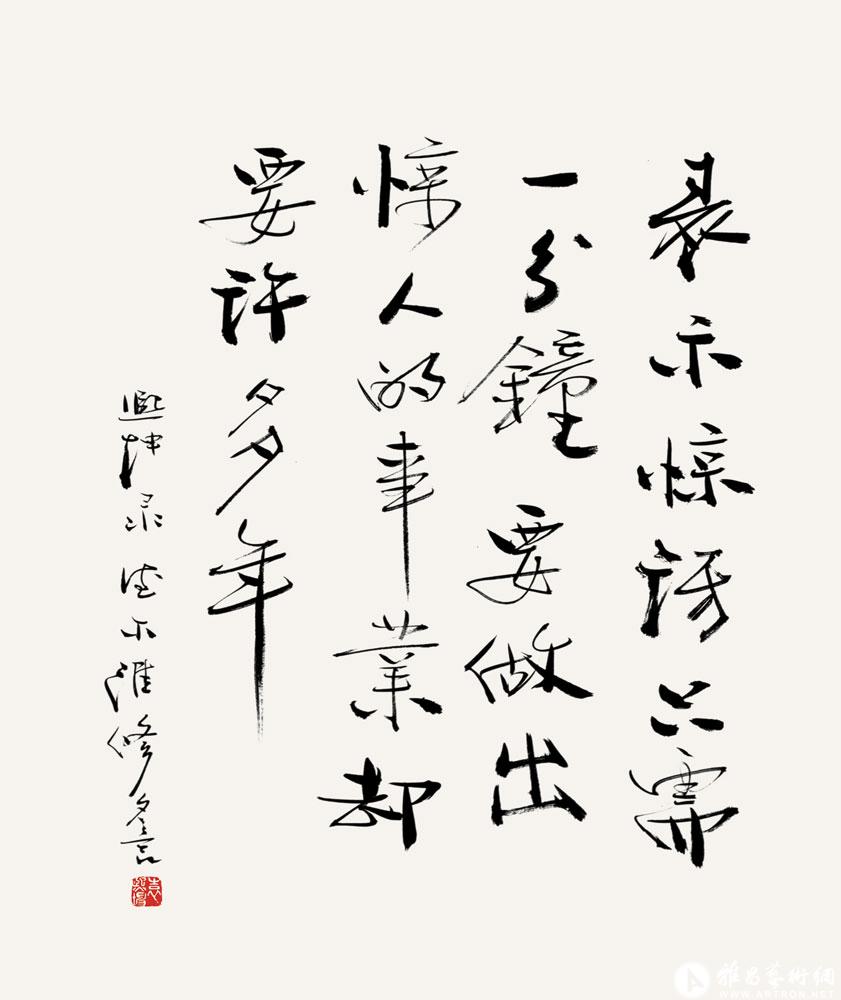 表示惊讶只需
一分鐘要做出
惊人的事業却
要许多年
熙坤录 尔維修名言
雅昌藝術網
WWW.ARTRON.NET